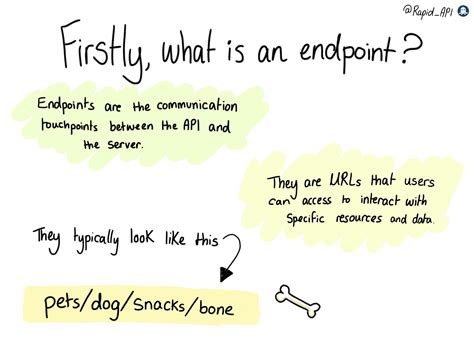 @Rapid_API
Firstly, what is an endpoint?
Endpoints are the communication
touchpoints between the API and
the server.
They are URLs that users
can access to interact with
specific resources and data.
They typically look like this
pets/dog/snacks/bone